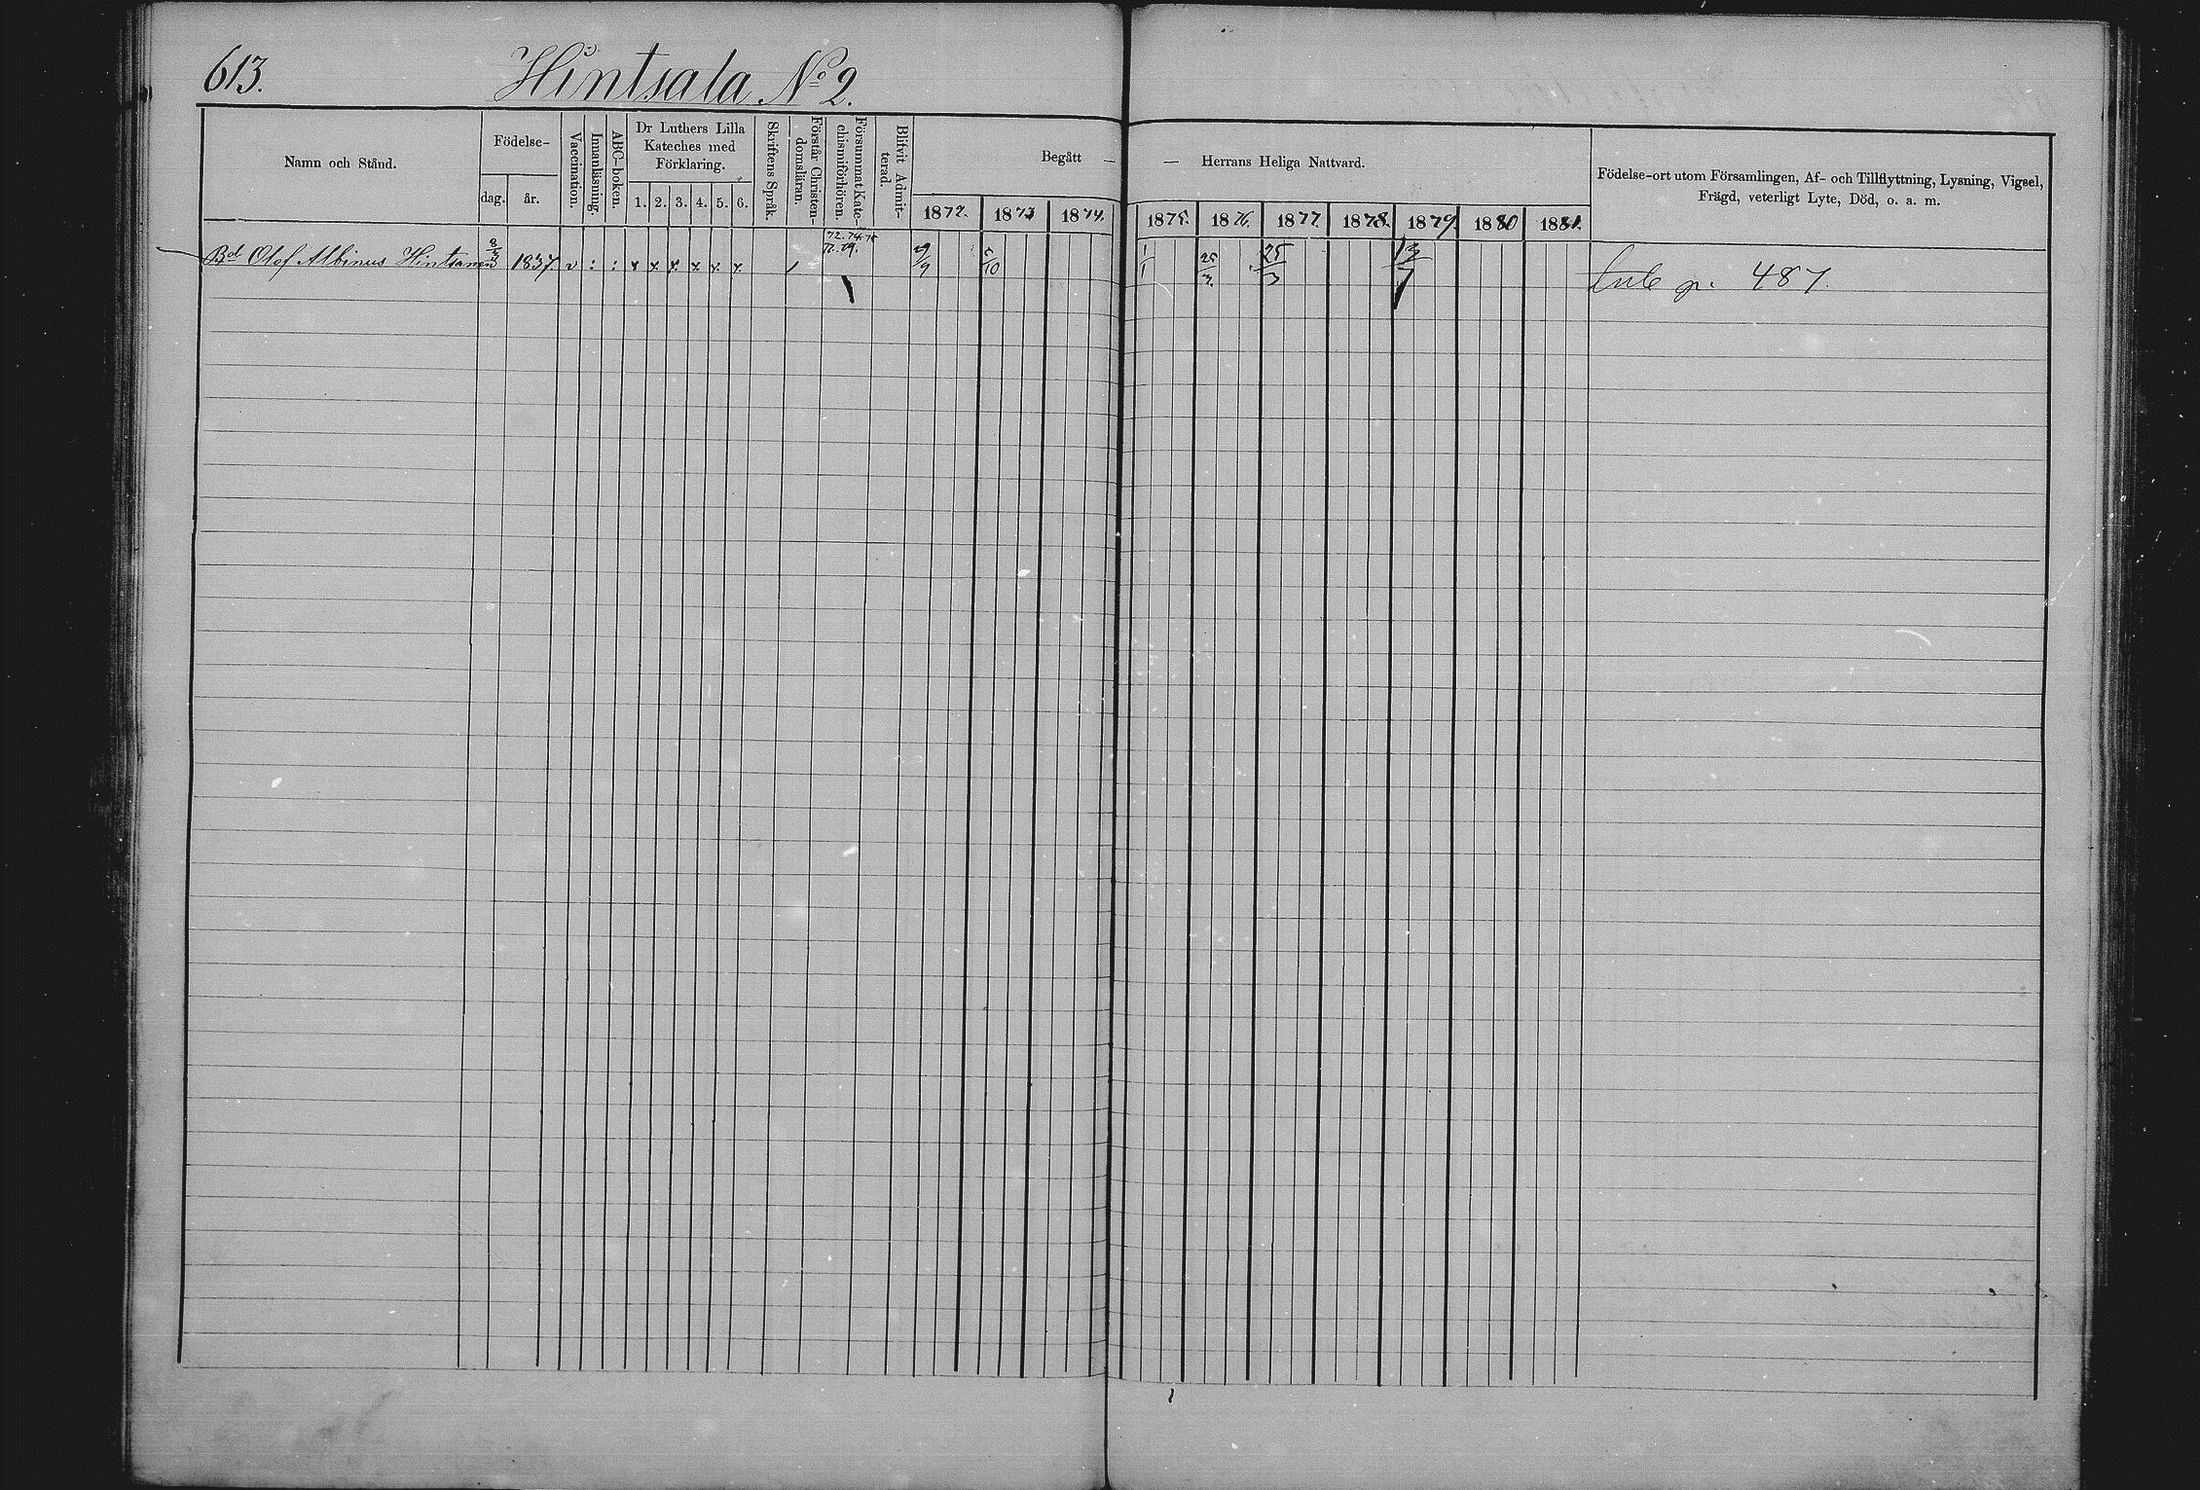 613.
Hintsala No 2.
Namn och Stånd.
Födelse-
dag.
år.
Vaccination.
Innanläsning.
ABC-boken.
Dr Luthers Lilla
Kateches med
Förklaring.
1. 2. 3. 4. 5. 6.
Skriftens Språk.
Förstår Christen-
domsläran.
Försummat Kate-
chismiförhören.
Blifvit Admit-
terad.
Begått —
— Herrans Heliga Nattvard.
1872. 1873 1874. 1875. 1876. 1877. 1878. 1879. 1880 1881.
Födelse-ort utom Församlingen, Af- och Tillflyttning, Lysning, Vigsel,
Frägd, veterligt Lyte, Död, o. a. m.
72. 74. 75
77. 79.
Bd Olof Albinus Hintsanen 8/3 1837. v : : x x x x x x / 9/9 5/10 1/1 25/3 25/3 13/7
p. 487.